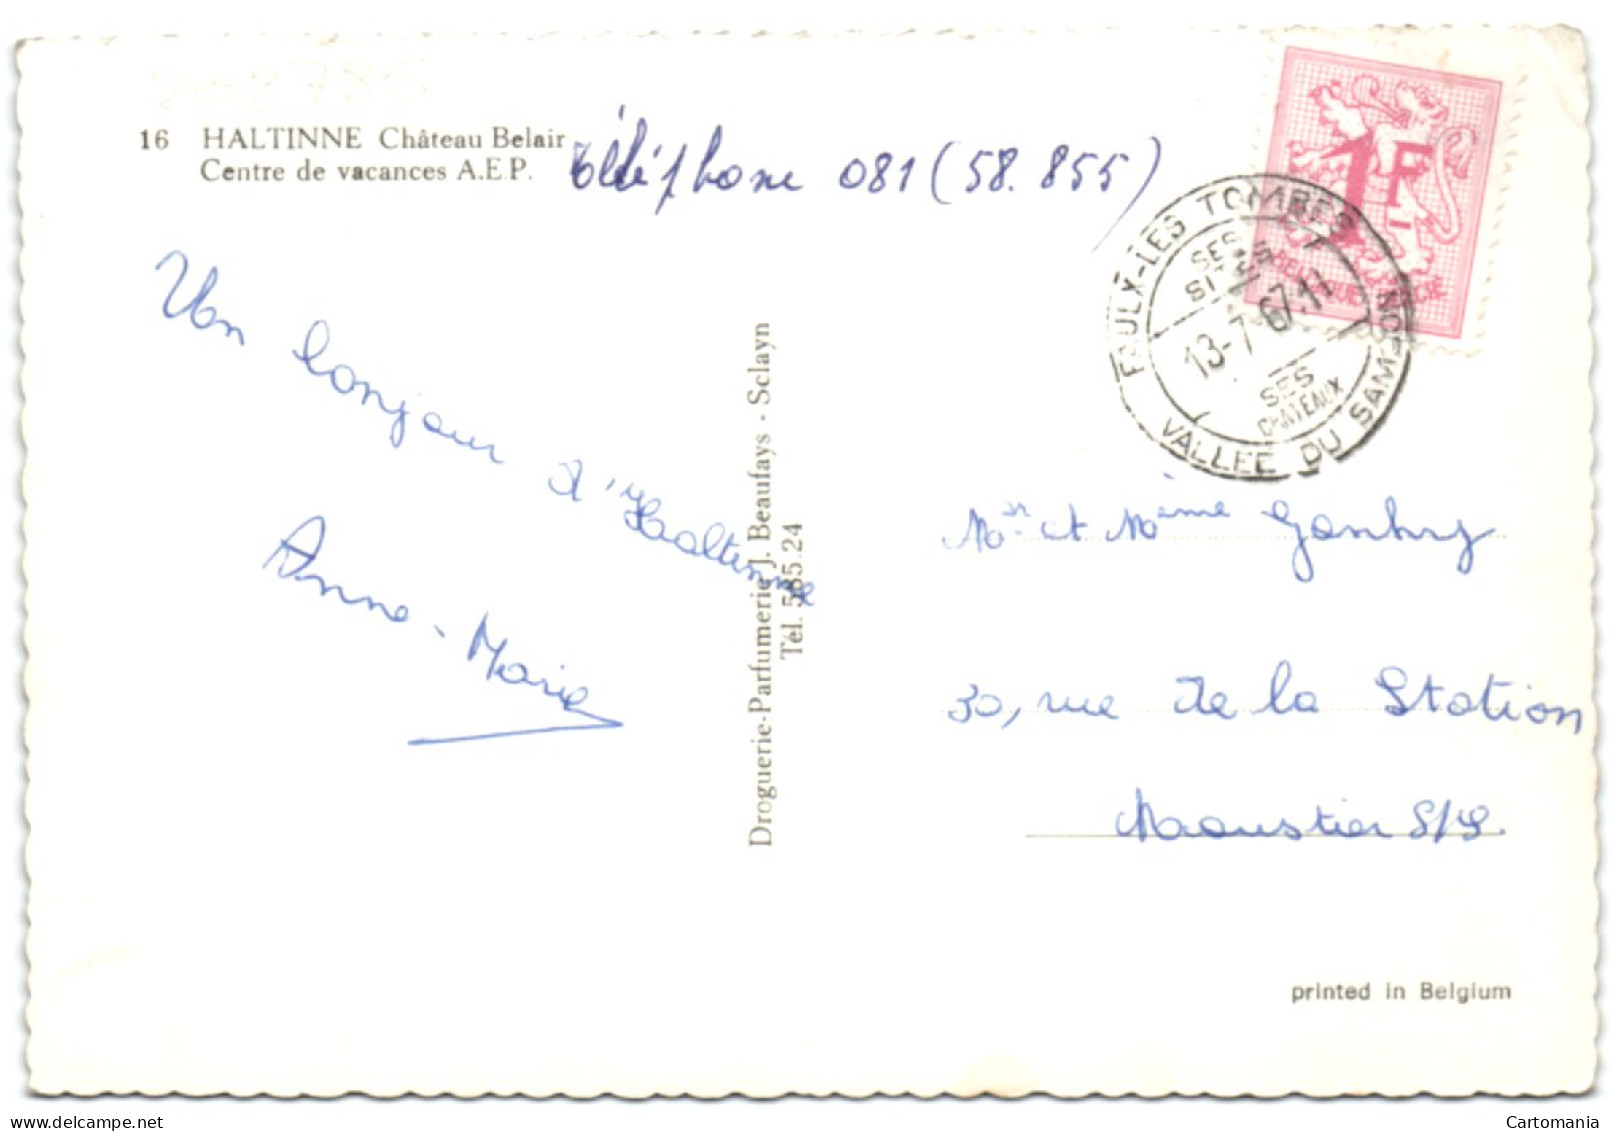 16 HALTINNE Château Belair
Centre de vacances A.E.P.
téléphone 081 (58.855)
Un bonjour
d'Haltinne
Anne-Marie
Droguerie-Parfumerie J. Beaufays - Sclayn
Tél. 585.24
1F
BELGIQUE BELGIË
FAULX-LES TOMBES
SES
SITES
13-7-67.11
SES
CHATEAUX
VALLEE DU SAMSON
Mr et Mème Gontry
30, rue de la Station
Moustier S/S.
printed in Belgium
Cartomania